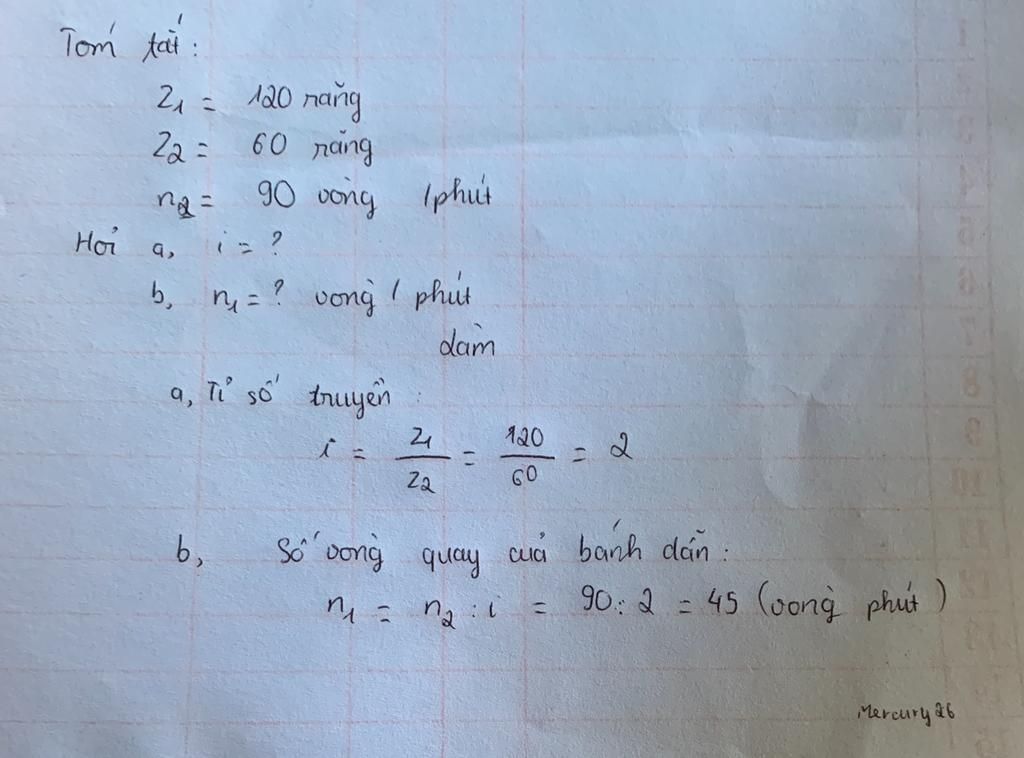 Tóm tắt:
Z1 = 120 răng
Z2 = 60 răng
n2 = 90 vòng /phút
Hỏi a, i = ?
b, n1 = ? vòng / phút
dàm
a, Tỉ số truyền :
i = Z1/Z2 = 120/60 = 2
b, Số vòng quay của bánh dẫn:
n1 = n2 : i = 90 : 2 = 45 (vòng phút)
Mercury26